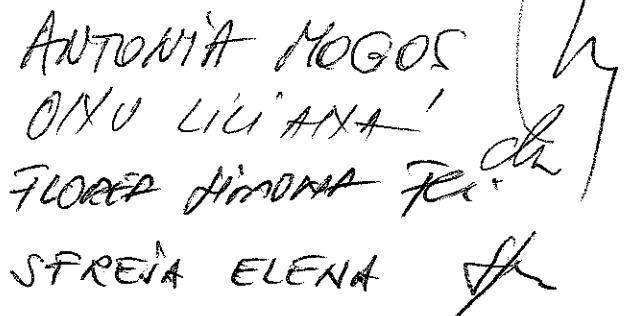 ANTONIA MOGOS
ONU LILIANA
FLOREA SIMONA
SFREJA ELENA